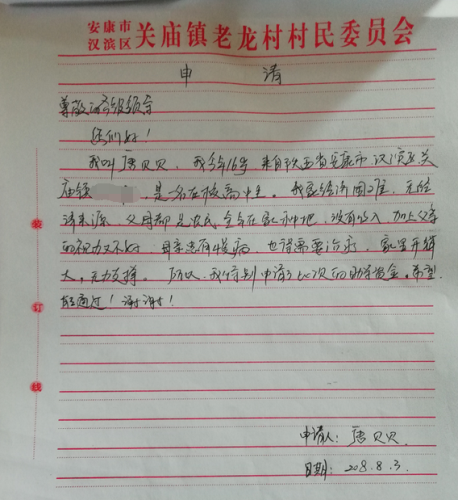 安康市
汉滨区 关庙镇老龙村村民委员会
申 请
尊敬的各级领导
您们好！
我叫唐贝贝，我今年16岁，来自陕西省安康市汉滨区关
庙镇，是一名在校高中生。我家经济困难，无经
济来源，父母都是农民，全年在家种地，没有收入，加上父亲
的视力又不好，母亲患有慢病，也得需要治疗，家里开销
大，无力支撑。所以，我特别申请了此次的助学资金。希望
能通过！谢谢！
装
订
线
申请人：唐贝贝.
日期：208.8.3.